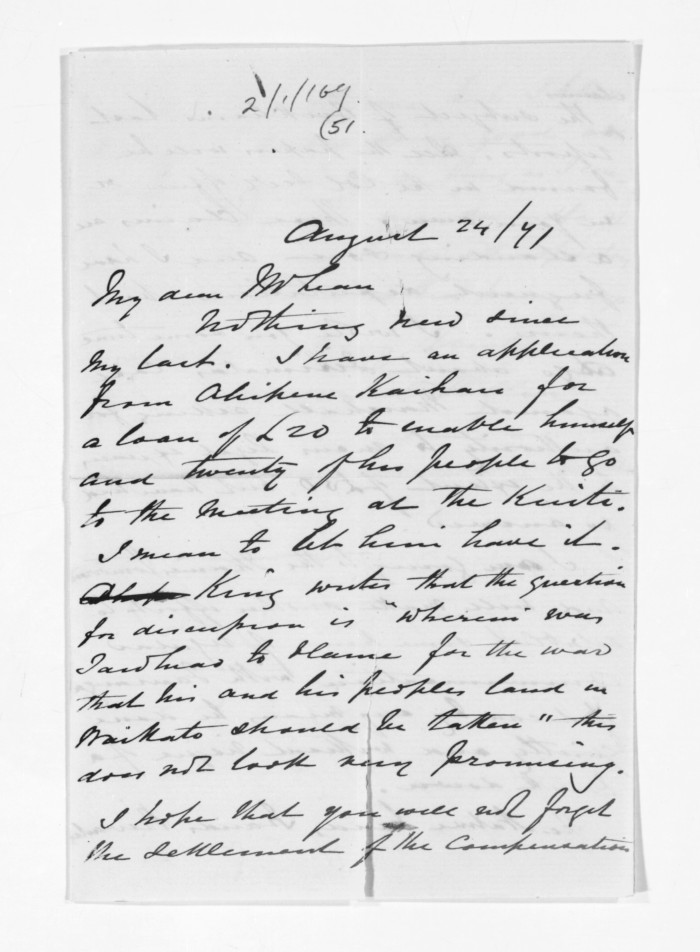 2/1/169
(51.
August 24/71
My dear McLean
Nothing new since
my last. I have an application
from Ahipene Kaihau for
a loan of £20 to enable himself
and twenty of his people to go
to the meeting at the Kuiti.
I mean to let him have it.
King writes that the question
for discussion is "wherein was
Tawhiao to blame for the war
that his and his peoples land in
Waikato should be taken" this
does not look very promising.
I hope that you will not forget
the settlement of the compensation